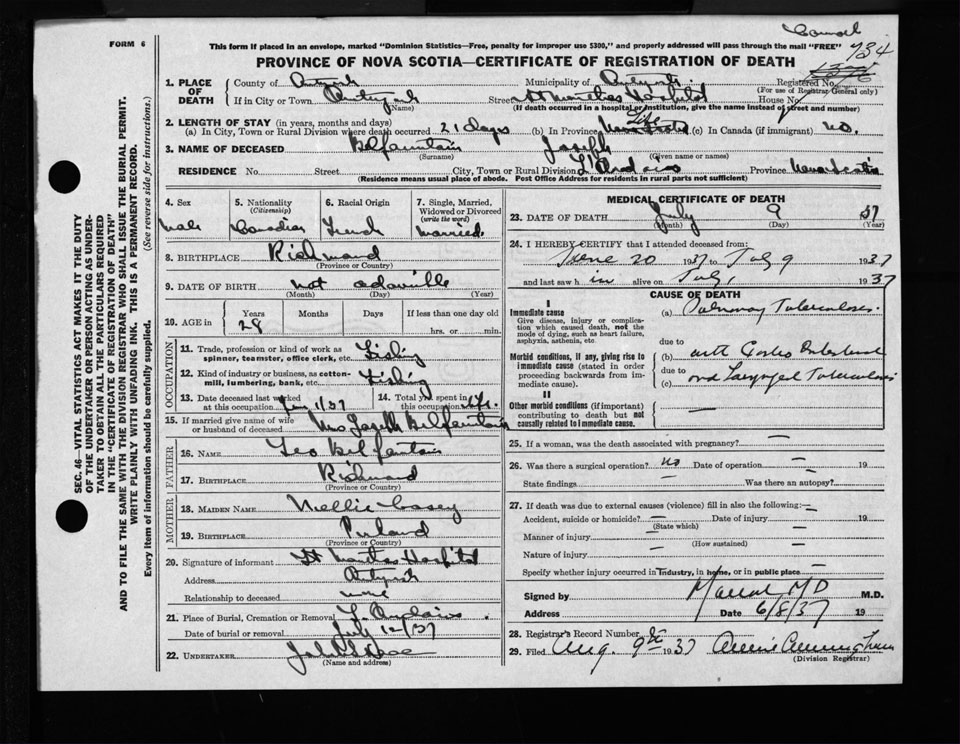 FORM 6
This form if placed in an envelope, marked "Dominion Statistics—Free, penalty for improper use $300," and properly addressed will pass through the mail "FREE"
734
PROVINCE OF NOVA SCOTIA—CERTIFICATE OF REGISTRATION OF DEATH
1. PLACE OF DEATH
County of Antigonish Municipality of Antigonish Registered No.
(For use of Registrar General only)
If in City or Town Antigonish Street St Marthas Hospital House No.
(Name) (If death occurred in a hospital or institution, give name instead of street and number)
2. LENGTH OF STAY (in years, months and days)
(a) In City, Town or Rural Division where death occurred 21 days (b) In Province Life (c) In Canada (if immigrant) no.
3. NAME OF DECEASED Belfountain Joseph
(Surname) (Given name or names)
RESIDENCE No. Street City, Town or Rural Division L'Ardois Province Nova Scotia
(Residence means usual place of abode. Post Office Address for residents in rural parts not sufficient)
4. Sex
Male
5. Nationality (Citizenship)
Canadian
6. Racial Origin
French
7. Single, Married, Widowed or Divorced (write the word)
Married
8. BIRTHPLACE Richmond
(Province or Country)
9. DATE OF BIRTH not
(Month) (Day) (Year)
10. AGE in
Years Months Days If less than one day old
28 hrs. or min.
OCCUPATION
11. Trade, profession or kind of work as spinner, teamster, office clerk, etc. Fishing
12. Kind of industry or business, as cotton-mill, lumbering, bank, etc. Fishing
13. Date deceased last worked at this occupation 1/37
14. Total yrs. spent in this occupation Life.
15. If married give name of wife or husband of deceased Mrs Joseph Belfountain
FATHER
16. NAME Leo Belfountain
17. BIRTHPLACE Richmond
(Province or Country)
MOTHER
18. MAIDEN NAME Nellie Casey
19. BIRTHPLACE
(Province or Country)
20. Signature of informant St Marthas Hospital
Address Antigonish
Relationship to deceased none
21. Place of Burial, Cremation or Removal
Date of burial or removal July 12/37
22. UNDERTAKER
(Name and address)
MEDICAL CERTIFICATE OF DEATH
23. DATE OF DEATH July 9 37
(Month) (Day) (Year)
24. I HEREBY CERTIFY that I attended deceased from:
June 20 1937 to July 9 1937
and last saw him alive on July 1937
CAUSE OF DEATH
I
Immediate cause
Give disease, injury or complication which caused death, not the mode of dying, such as heart failure, asphyxia, asthenia, etc.
(a) Pulmonary Tuberculosis
due to
Morbid conditions, if any, giving rise to immediate cause (stated in order proceeding backwards from immediate cause).
(b) with Gastro Intestinal
due to
(c) and Laryngeal Tuberculosis
II
Other morbid conditions (if important) contributing to death but not causally related to immediate cause. —
25. If a woman, was the death associated with pregnancy? —
26. Was there a surgical operation? no Date of operation — 19
State findings — Was there an autopsy? —
27. If death was due to external causes (violence) fill in also the following:—
Accident, suicide or homicide? — Date of injury — 19
(State which)
Manner of injury —
(How sustained)
Nature of injury —
Specify whether injury occurred in industry, in home, or in public place —
Signed by M.D. M.D.
Address Date 6/8/37 19
28. Registrar's Record Number
29. Filed Aug. 9th 1937
(Division Registrar)
SEC. 46—VITAL STATISTICS ACT MAKES IT THE DUTY
OF THE UNDERTAKER OR PERSON ACTING AS UNDER-
TAKER TO OBTAIN ALL THE PARTICULARS REQUIRED
IN THE "CERTIFICATE OF REGISTRATION OF DEATH"
AND TO FILE THE SAME WITH THE DIVISION REGISTRAR WHO SHALL ISSUE THE BURIAL PERMIT.
WRITE PLAINLY WITH UNFADING INK. THIS IS A PERMANENT RECORD.
Every item of information should be carefully supplied. (See reverse side for instructions.)